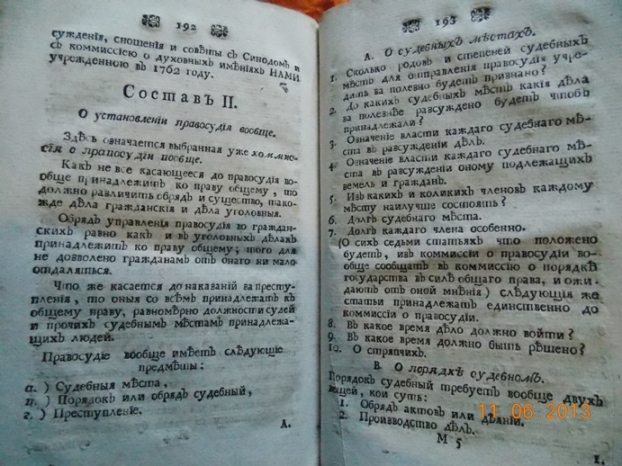 192
суждения, сношения и совѣты съ Синодомъ и
съ коммиссіею о духовныхъ имѣніяхъ НАМИ
учрежденною въ 1762 году.
Составъ II.
О установленіи правосудія вообще.
Здѣсь означается выбранная уже коммис-
сія о правосудіи вообще.
Какъ не все касающееся до правосудія во-
обще принадлежитъ ко праву общему, то
должно различить обрядъ и существо, тако-
жде дѣла гражданскія и дѣла уголовныя.
Обрядъ управленія правосудія во граждан-
скихъ равно какъ и въ уголовныхъ дѣлахъ
принадлежитъ ко праву общему; того для
не дозволено гражданамъ отъ онаго ни мало
отдаляться.
Что же касается до наказаній за престу-
пленія, то оныя со всѣмъ принадлежатъ къ
общему праву, равномѣрно должности судей
и прочихъ судебнымъ мѣстамъ принадлежа-
щихъ людей.
Правосудіе вообще имѣетъ слѣдующіе
предмѣты:
а.) Судебныя мѣста,
п.) Порядокъ или обрядъ судебный,
г.) Преступленіе.
А.
193
А. О судебныхъ мѣстахъ.
1. Сколько родовъ и степеней судебныхъ
мѣстъ для отправленія правосудія учре-
дить за полезно будетъ признано?
2. До какихъ судебныхъ мѣстъ какія дѣла
за полезнѣе разсуждено будетъ чтобъ
принадлежали?
3. Означеніе власти каждаго судебнаго мѣ-
ста въ разсужденіи дѣлъ.
4. Означеніе власти каждаго судебнаго мѣ-
ста въ разсужденіи оному подлежащихъ
земель и гражданъ.
5. Изъ какихъ и коликихъ членовъ каждому
мѣсту наилучше состоять?
6. Долгъ судебнаго мѣста.
7. Долгъ каждаго члена особенно.
(О сихъ седьми статьяхъ что положено
будетъ, изъ коммиссіи о правосудіи во-
обще сообщать въ коммиссію о порядкѣ
государства въ силѣ общаго права, и ожи-
дать отъ оной мнѣнія) слѣдующія же
статьи принадлежатъ единственно до
коммиссіи о правосудіи.
8. Въ какое время дѣло должно войти?
9. Въ какое время должно быть рѣшено?
10. О стряпчихъ.
В. О порядкѣ судебномъ.
Порядокъ судебный требуетъ вообще двухъ
вещей, кои суть:
1. Обрядъ актовъ или дѣяній.
2. Производство дѣлъ.
М 5
1.
11 06 2013